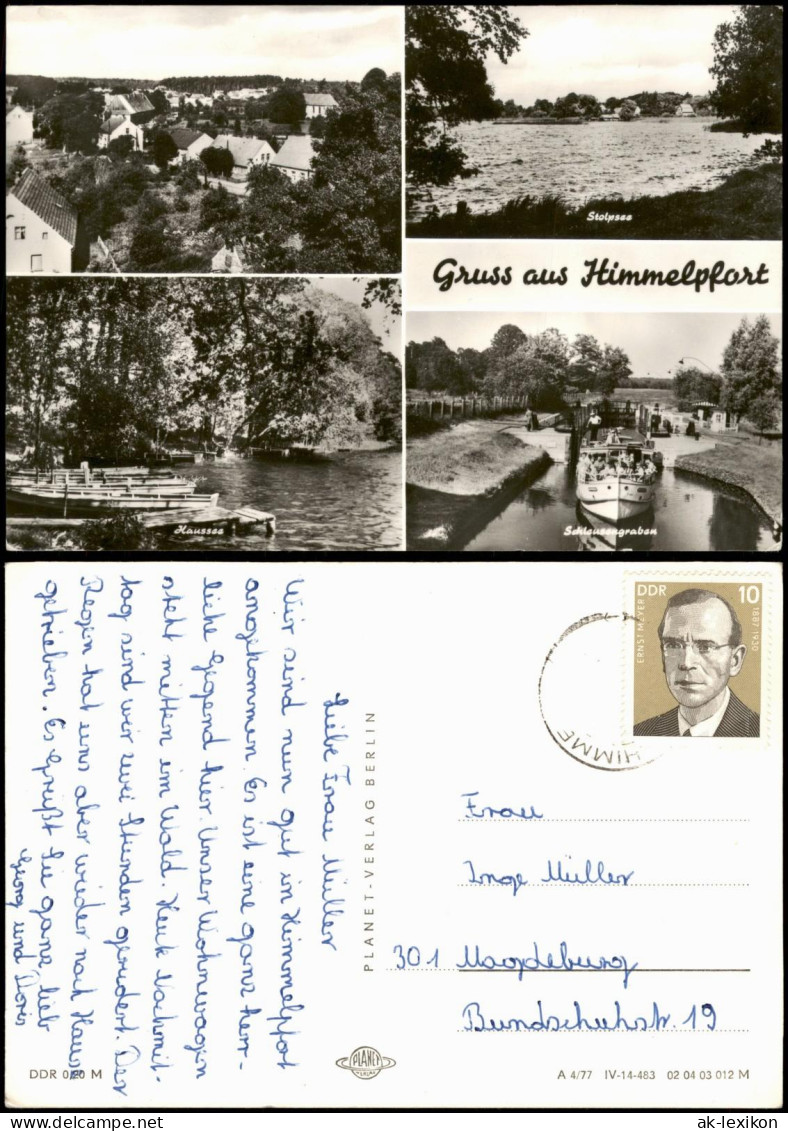 Stolpsee
Gruss aus Himmelpfort
Haussee
Schleusengraben
Liebe Frau Müller
Wir sind nun gut in Himmelpfort
angekommen. Es ist eine ganz herr-
liche Gegend hier. Unser Wohnwagen
steht mitten im Wald. Heute Nachmit-
tag sind wir zwei Stunden gerudert. Der
Regen hat uns aber wieder nach Hause
getrieben. Es grüßt Sie ganz lieb
Georg und Doris
PLANET-VERLAG BERLIN
DDR 10
ERNST MEYER
1887-1930
HIMME
Frau
Inge Müller
301 Magdeburg
Bundschuhstr. 19
DDR 0,20 M
PLANET
VERLAG
A 4/77 IV-14-483 02 04 03 012 M
ak-lexikon